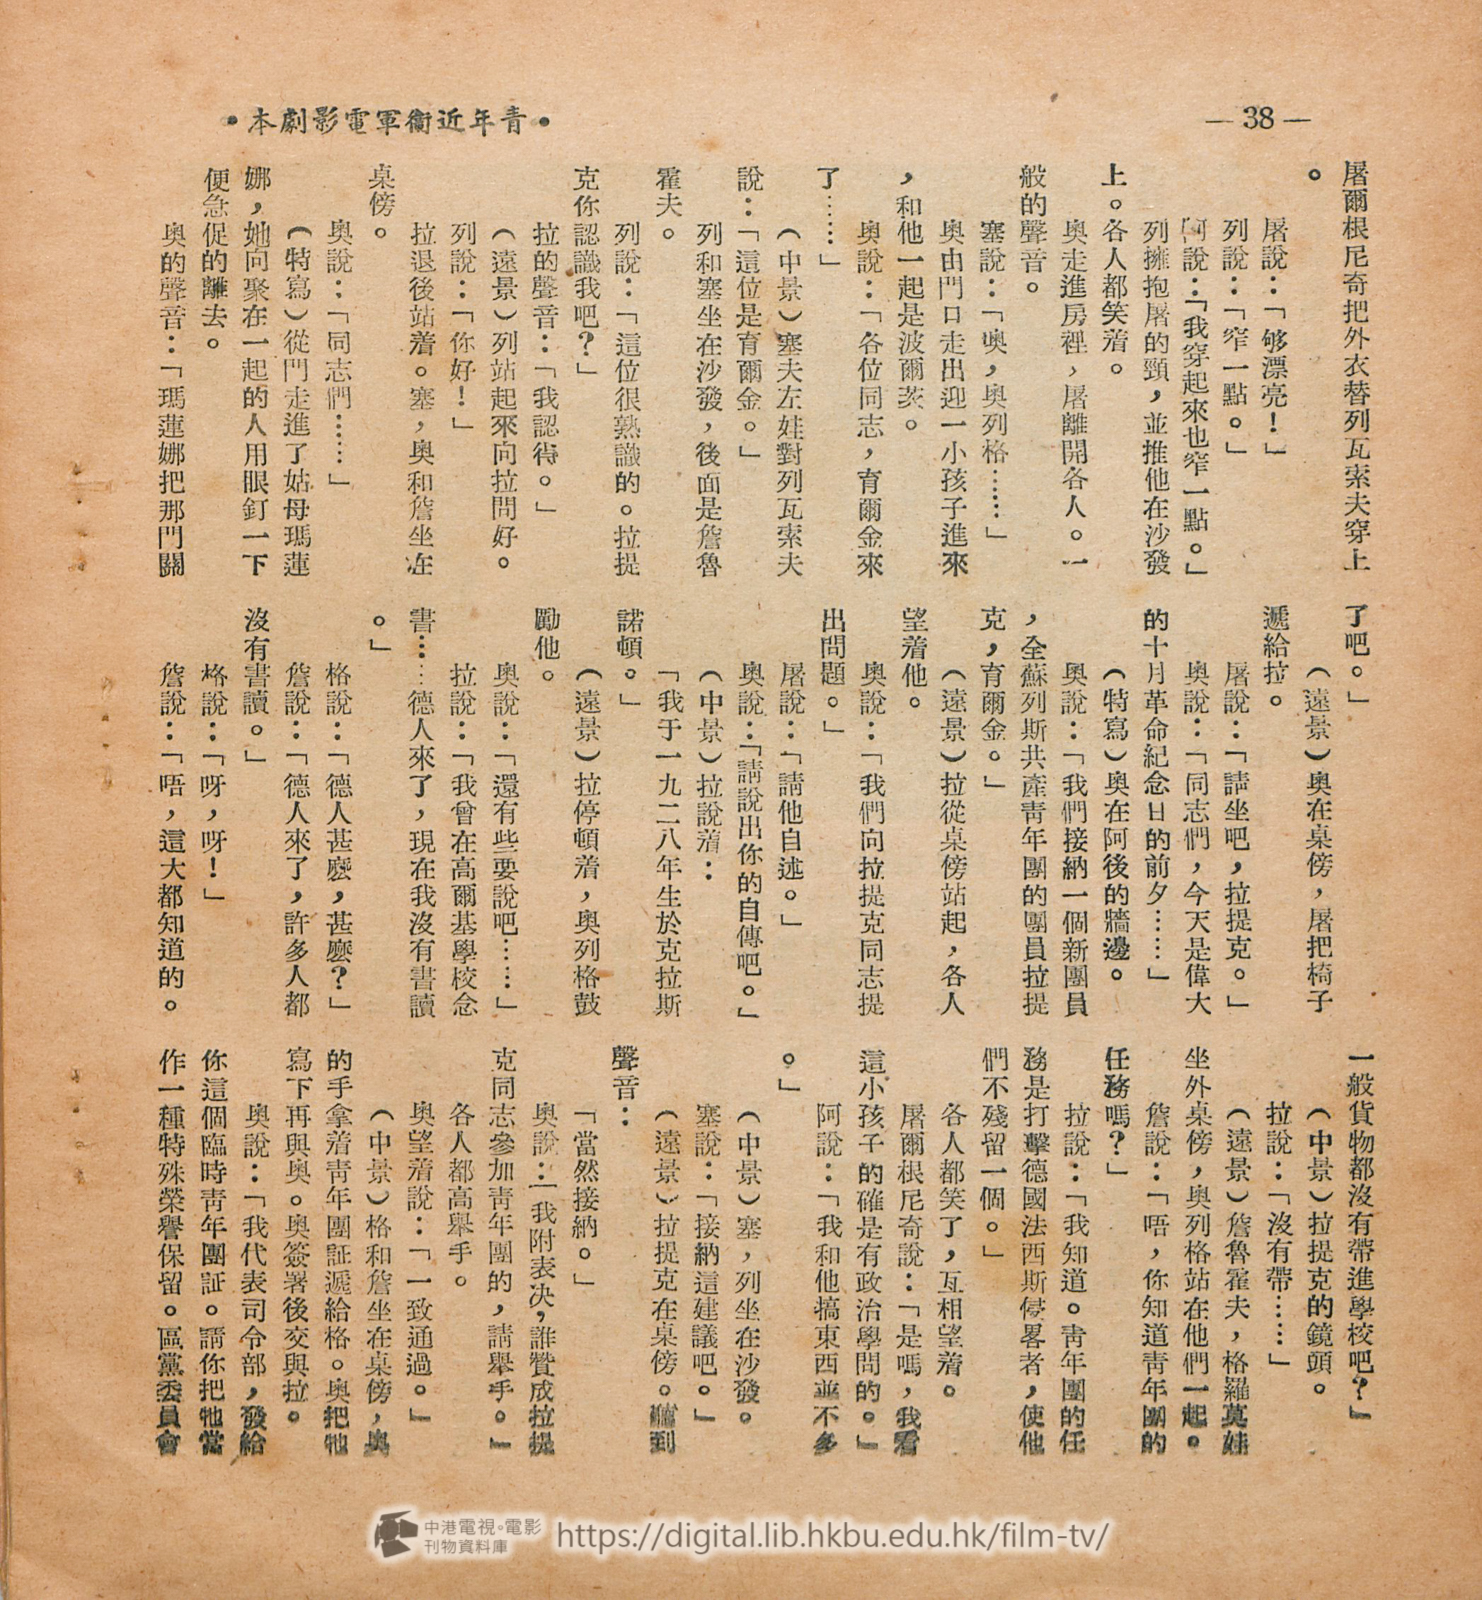 — 38 —
•青年近衞軍電影劇本•
屠爾根尼奇把外衣替列瓦索夫穿上
。
屠說：「够漂亮！」
列說：「窄一點。」
阿說：「我穿起來也窄一點。」
列擁抱屠的頸，並推他在沙發
上。各人都笑着。
奥走進房裡，屠離開各人。一
般的聲音。
塞說：「噢，奥列格……」
奥由門口走出迎一小孩子進來
，和他一起是波爾茨。
奥說：「各位同志，育爾金來
了……」
（中景）塞夫左娃對列瓦索夫
說：「這位是育爾金。」
列和塞坐在沙發，後面是詹魯
霍夫。
列說：「這位很熟識的。拉提
克你認識我吧？」
拉的聲音：「我認得。」
（遠景）列站起來向拉問好。
列說：「你好！」
拉退後站着。塞，奥和詹坐在
桌傍。
奥說：「同志們……」
（特寫）從門走進了姑母瑪蓮
娜，她向聚在一起的人用眼釘一下
便急促的離去。
奥的聲音：「瑪蓮娜把那門關
了吧。」
（遠景）奥在桌傍，屠把椅子
遞給拉。
屠說：「請坐吧，拉提克。」
奥說：「同志們，今天是偉大
的十月革命紀念日的前夕……」
（特寫）奥在阿後的牆邊。
奥說：「我們接納一個新團員
，全蘇列斯共產靑年團的團員拉提
克，育爾金。」
（遠景）拉從桌傍站起，各人
望着他。
奥說：「我們向拉提克同志提
出問題。」
屠說：「請他自述。」
奥說：「請說出你的自傳吧。」
（中景）拉說着：
「我于一九二八年生於克拉斯
諾頓。」
（遠景）拉停頓着，奥列格鼓
勵他。
奥說：「還有些要說吧……」
拉說：「我曾在高爾基學校念
書……德人來了，現在我沒有書讀
。」
格說：「德人甚麽，甚麽？」
詹說：「德人來了，許多人都
沒有書讀。」
格說：「呀，呀！」
詹說：「唔，這大都知道的。
一般貨物都沒有帶進學校吧？」
（中景）拉提克的鏡頭。
拉說：「沒有帶……」
（遠景）詹魯霍夫，格羅莫娃
坐外桌傍，奥列格站在他們一起。
詹說：「唔，你知道靑年團的
任務嗎？」
拉說：「我知道。靑年團的任
務是打擊德國法西斯侵畧者，使他
們不殘留一個。」
各人都笑了，互相望着。
屠爾根尼奇說：「是嗎，我看
這小孩子的確是有政治學問的。」
阿說：「我和他搞東西並不多
。」
（中景）塞，列坐在沙發。
塞說：「接納這建議吧。」
（遠景）拉提克在桌傍。聽到
聲音：
「當然接納。」
奥說：「我附表决，誰贊成拉提
克同志參加靑年團的，請舉手。」
各人都高舉手。
奥望着說：「一致通過。」
（中景）格和詹坐在桌傍，奥
的手拿着靑年團証遞給格。奥把牠
寫下再與奥。奥簽署後交與拉。
奥說：「我代表司令部，發給
你這個臨時靑年團証。請你把牠當
作一種特殊榮譽保留。區黨委員會
中港電視•電影
刊物資料庫
https://digital.lib.hkbu.edu.hk/film-tv/